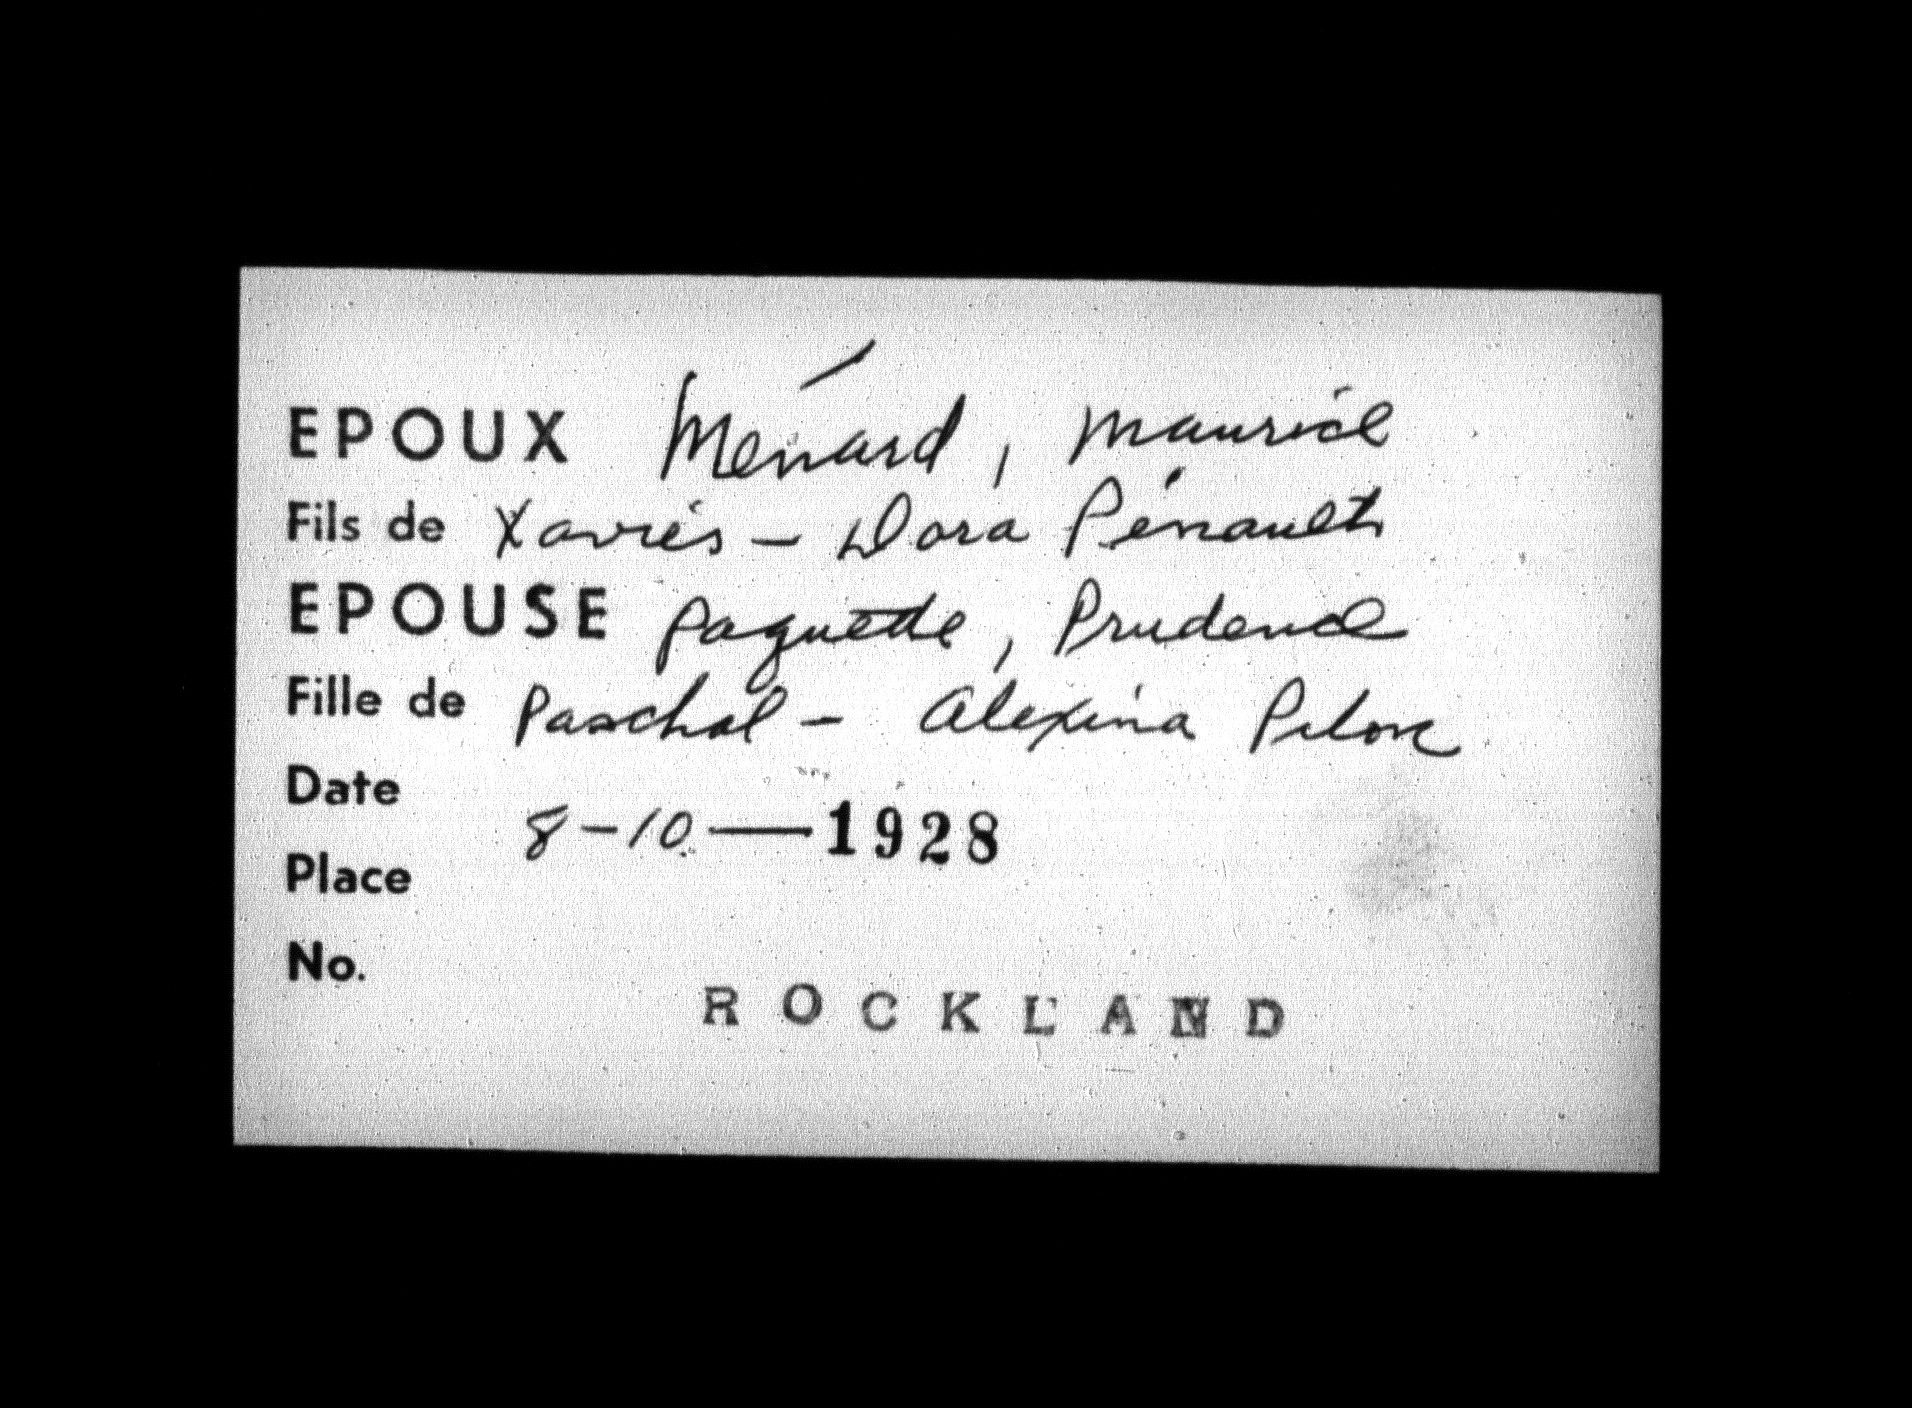 EPOUX Ménard, Maurice
Fils de Xavier - Dora Pénault
EPOUSE Paquette, Prudence
Fille de Paschal - Alexina Pilon
Date 8-10-1928
Place
No.
ROCKLAND